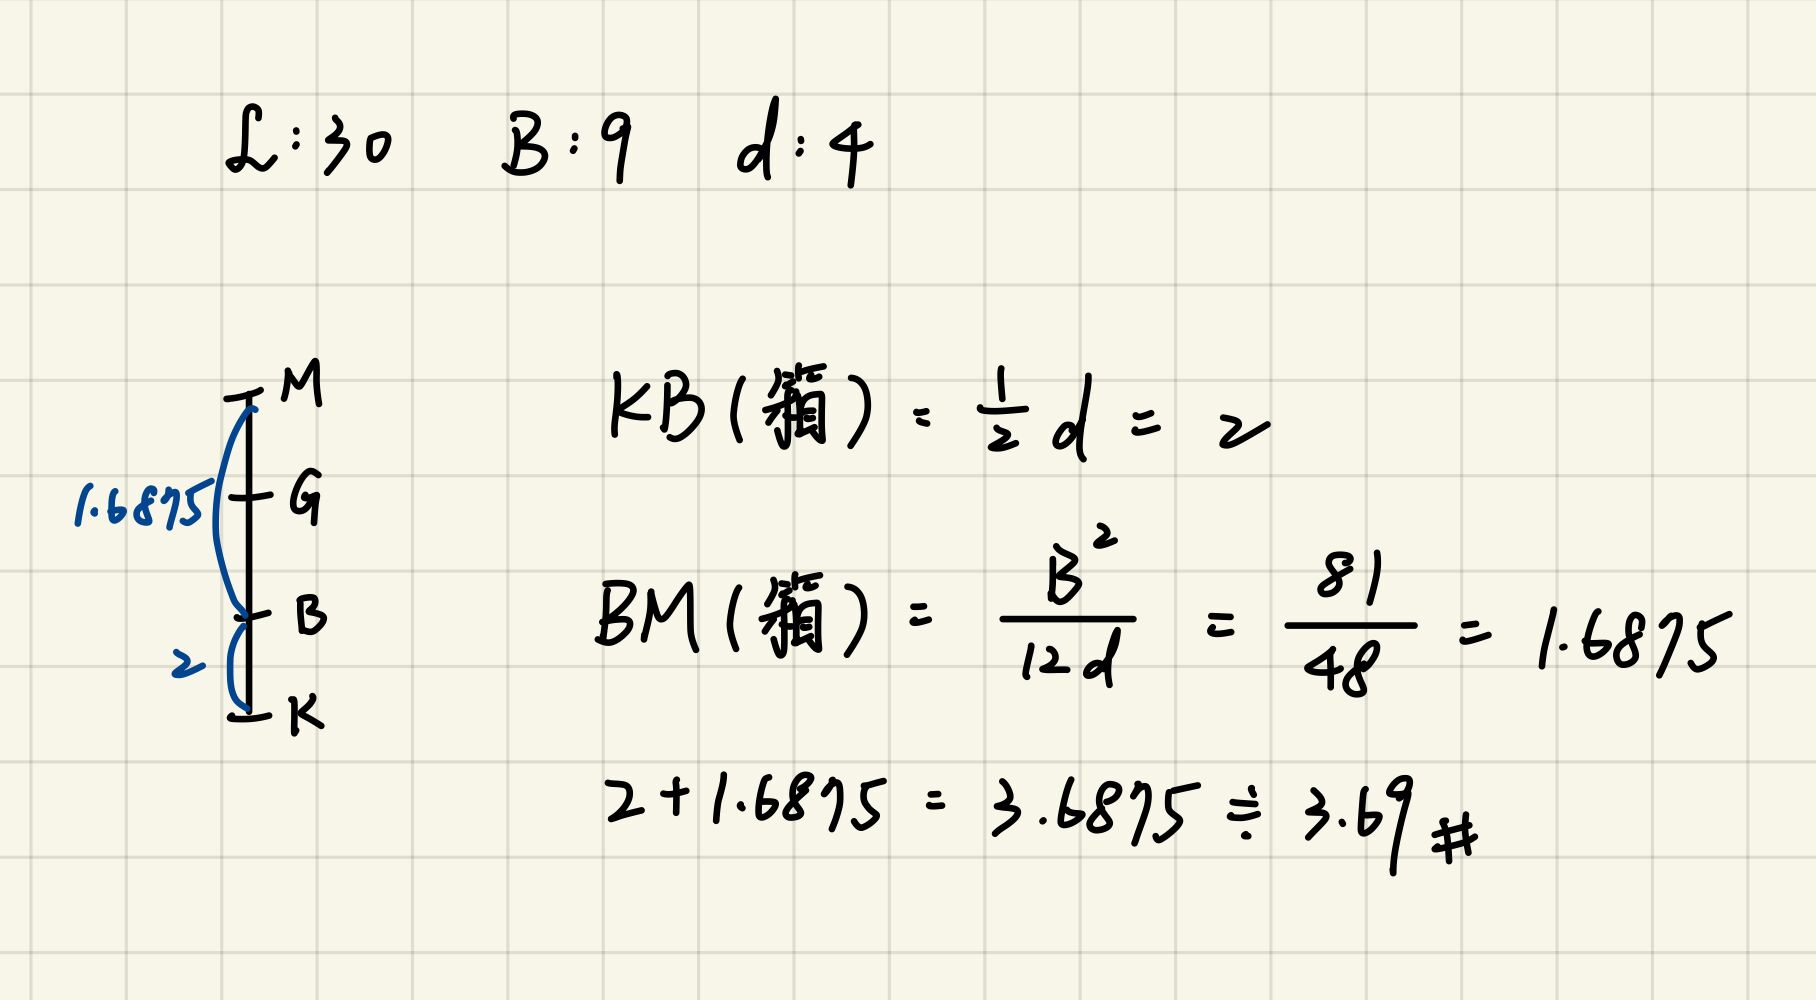 L:30 B:9 d:4
M
G
B
K
1.6875
2
KB(箱) = 1/2 d = 2
BM(箱) = B²/12d = 81/48 = 1.6875
2+1.6875 = 3.6875 ≑ 3.69 #